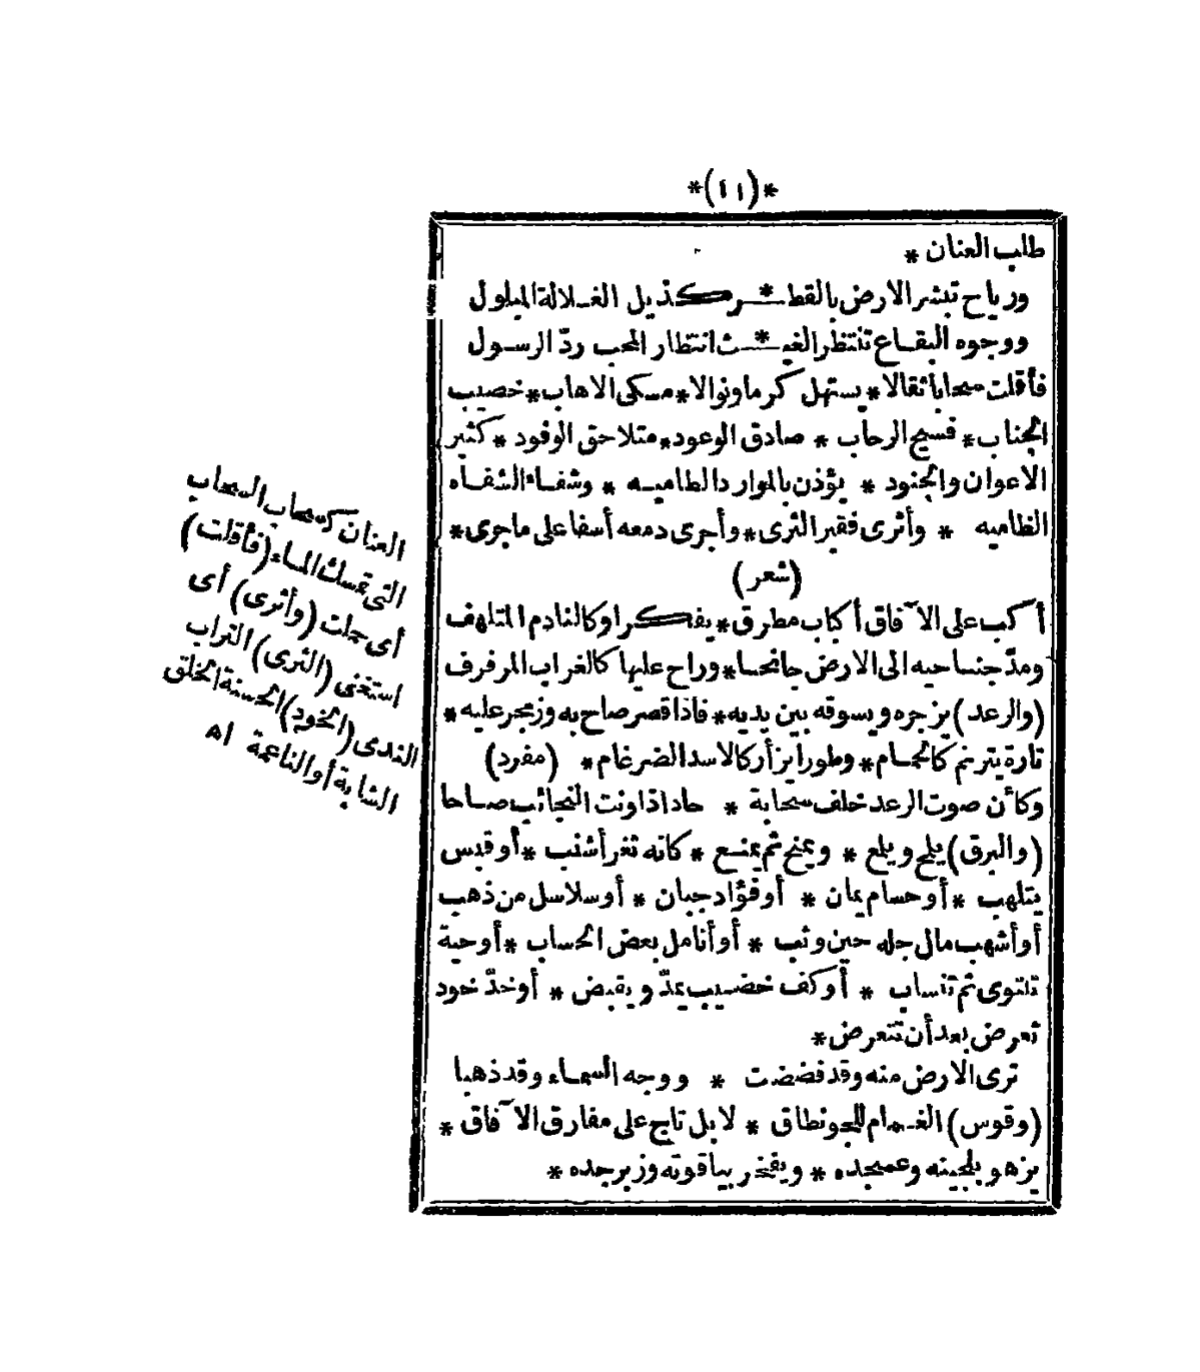 *(١١)*
طلب العنان *
ورياح تبشر الارض بالقطـ * ـر كذيل الغـلالة المبلول
ووجوه البقـاع تنتظر الغيـ * ـث انتظار المحب ردّ الرسـول
فأقلت سحابا ثقالا * يستهل كرما ونوالا * مسكى الاهاب * خصيب
الجناب * فسيح الرحاب * صادق الوعود * متلاحق الوفود * كثير
الاعوان والجنود * يؤذن بالموارد الطاميـه * وشفـاء الشفـاه
الظاميه * وأثرى فقير الثرى * وأجرى دمعه أسفا على ماجرى *
(شعر)
أكب على الآفاق أكباب مطرق * يفكر او كالنادم المتلهف
ومدّ جناحيه الى الارض جانحـا * وراح عليها كالغراب المرفرف
(والرعد) يزجره ويسوقه بين يديه * فاذا قصر صاح به وزمجر عليه *
تارة يترنم كالحمـام * وطورا يزأر كالاسد الضرغام * (مفرد)
وكأن صوت الرعد خلف سحابة * حاد اذا ونت النجائب صـاحا
(والبرق) يلمح ويلمع * ويمنح ثم يمنـع * كانه ثغر أشنب * أو قبس
يتلهب * أو حسام يمان * أو فؤاد جبان * أو سلاسل من ذهب
أو أشهب مال جله حين وثب * أو أنامل بعض الحساب * أو حية
تلتوى ثم تنساب * أو كف خضـيب يمدّ ويقبض * أو خدّ خود
تعرض بعد أن تتعرض *
ترى الارض منه وقد فضضت * ووجه السمـاء وقد ذهبا
(وقوس) الغـمام للجو نطاق * لا بل تاج على مفارق الآفاق *
يزهو بلجينه وعسجده * ويفخر بياقوته وزبرجده *
العنان كسحاب السحاب
التى تمسك المـاء (فأقلت)
أى حملت (وأثرى) أى
استغنى (الثرى) التراب
الندى (الخود) الحسنة الخلق
الشابة أو الناعمة اه